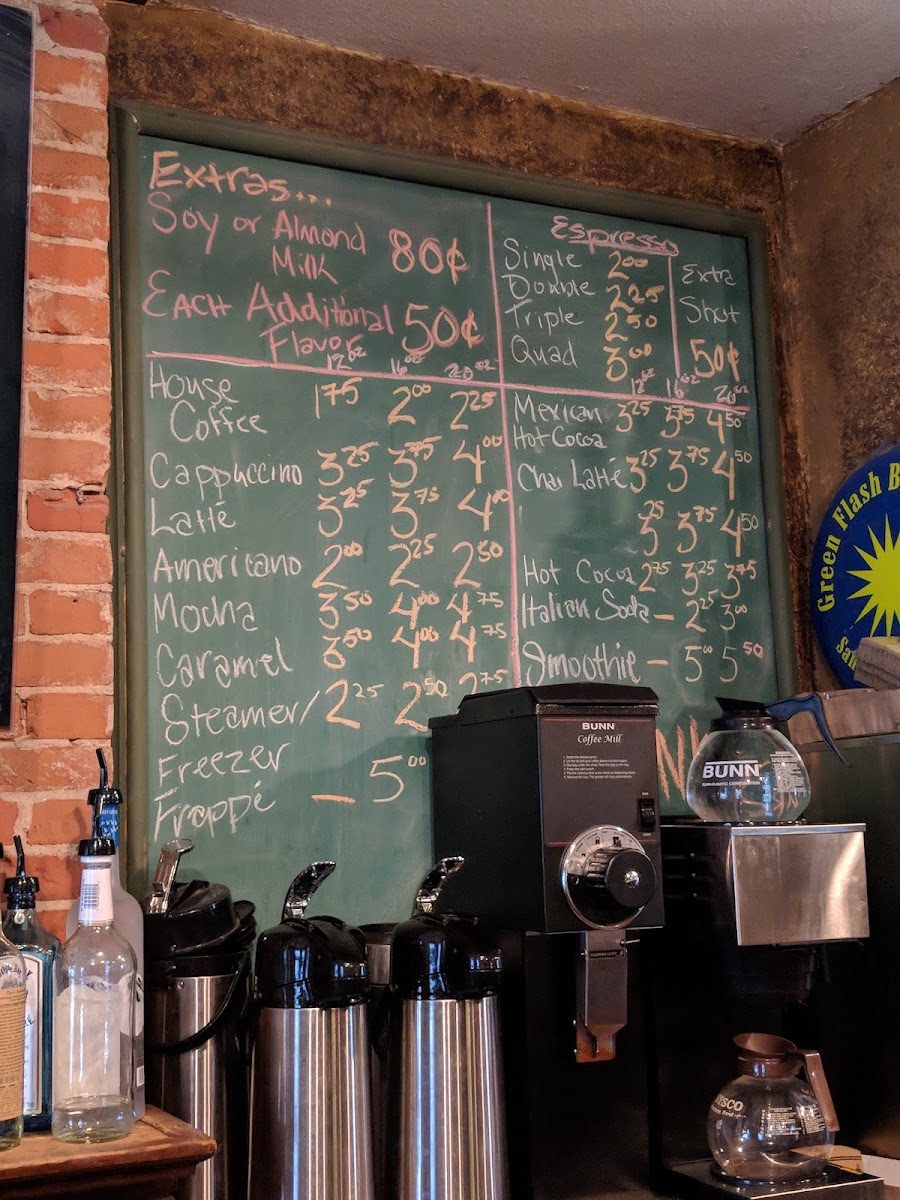 Extras...
Soy or Almond
Milk 80¢
Each Additional
Flavor 50¢
12oz 16oz 20oz
House
Coffee 1 75 2 00 2 25
Cappuccino 3 25 3 75 4 00
Latte 3 25 3 75 4 00
Americano 2 00 2 25 2 50
Mocha 3 50 4 00 4 75
Caramel 3 50 4 00 4 75
Steamer/ 2 25 2 50 2 75
Freezer
Frappé — 5 00
Espresso
Single 2 00
Double 2 25
Triple 2 50
Quad 3 00
Extra
Shot
50¢
12oz 16oz 20oz
Mexican 3 25 3 75 4 50
Hot Cocoa
Chai Latte 3 25 3 75 4 50
3 25 3 75 4 50
Hot Cocoa 2 75 3 25 3 75
Italian Soda — 2 25 3 00
Smoothie — 5 00 5 50
Green Flash B
San
BUNN
Coffee Mill
BUNN